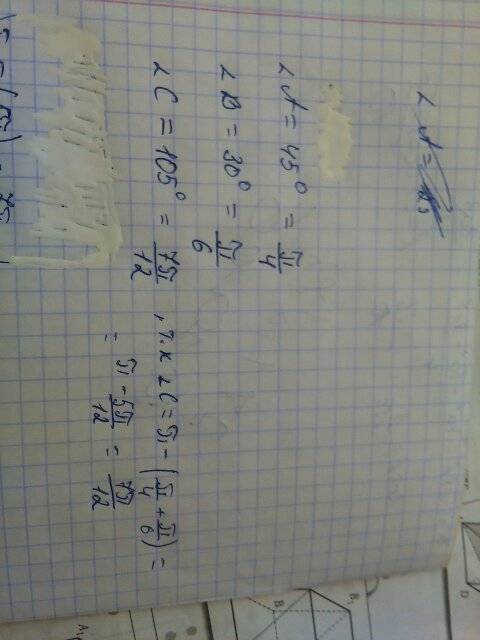 ∠ A =
∠ A = 45° = π/4
∠ B = 30° = π/6
∠ C = 105° = 7π/12 , т.к ∠C = π - (π/4 + π/6) =
= π - 5π/12 = 7π/12